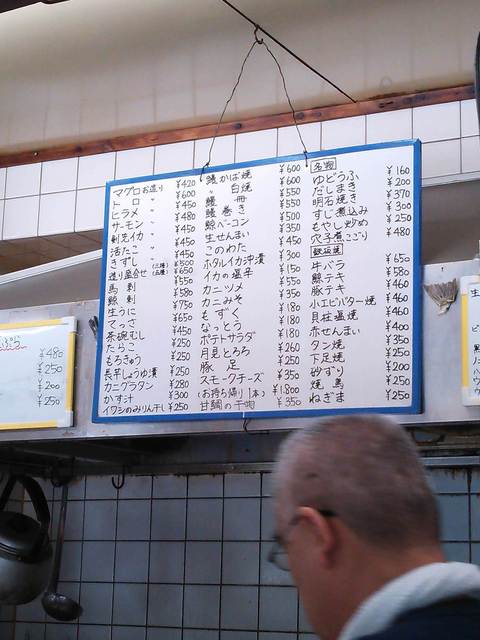 マグロお造り ¥420
トロ 〃 ¥600
ヒラメ 〃 ¥480
サーモン 〃 ¥450
剣先イカ 〃 ¥450
活たこ 〃 ¥450
きずし
造り盛合せ (三種) ¥500 (五種) ¥650
馬刺 ¥550
鯨刺 ¥580
生うに ¥750
てっさ ¥650
茶碗むし ¥450
たらこ ¥250
もろきゅう ¥250
長芋しょうゆ漬 ¥250
カニグラタン ¥280
かす汁 ¥300
イワシのみりん干し ¥250
鰻かば焼 ¥600
〃 白焼 ¥600
鰻 ¥600
鰻巻き ¥450
鯨ベーコン ¥500
生せんまい ¥450
このわた
ホタルイカ沖漬 ¥300
イカの塩辛
カニツメ ¥350
カニみそ ¥350
もずく ¥180
なっとう ¥180
ポテトサラダ ¥180
月見とろろ ¥260
豚足 ¥350
スモークチーズ ¥350
(お持ち帰り1本) ¥1.800
甘鯛の干物 ¥350
名物
ゆどうふ ¥160
だしまき ¥200
明石焼き ¥370
すじ煮込み ¥300
もやし炒め ¥250
穴子煮こごり ¥480
鉄板焼
牛バラ ¥650
鯨テキ ¥580
豚テキ ¥460
小エビバター焼 ¥460
貝柱塩焼 ¥460
赤せんまい ¥400
タン焼 ¥350
下足焼 ¥350
砂ずり ¥250
焼鳥 ¥200
ねぎま ¥250
ぷら
¥480
¥250
¥200
¥250